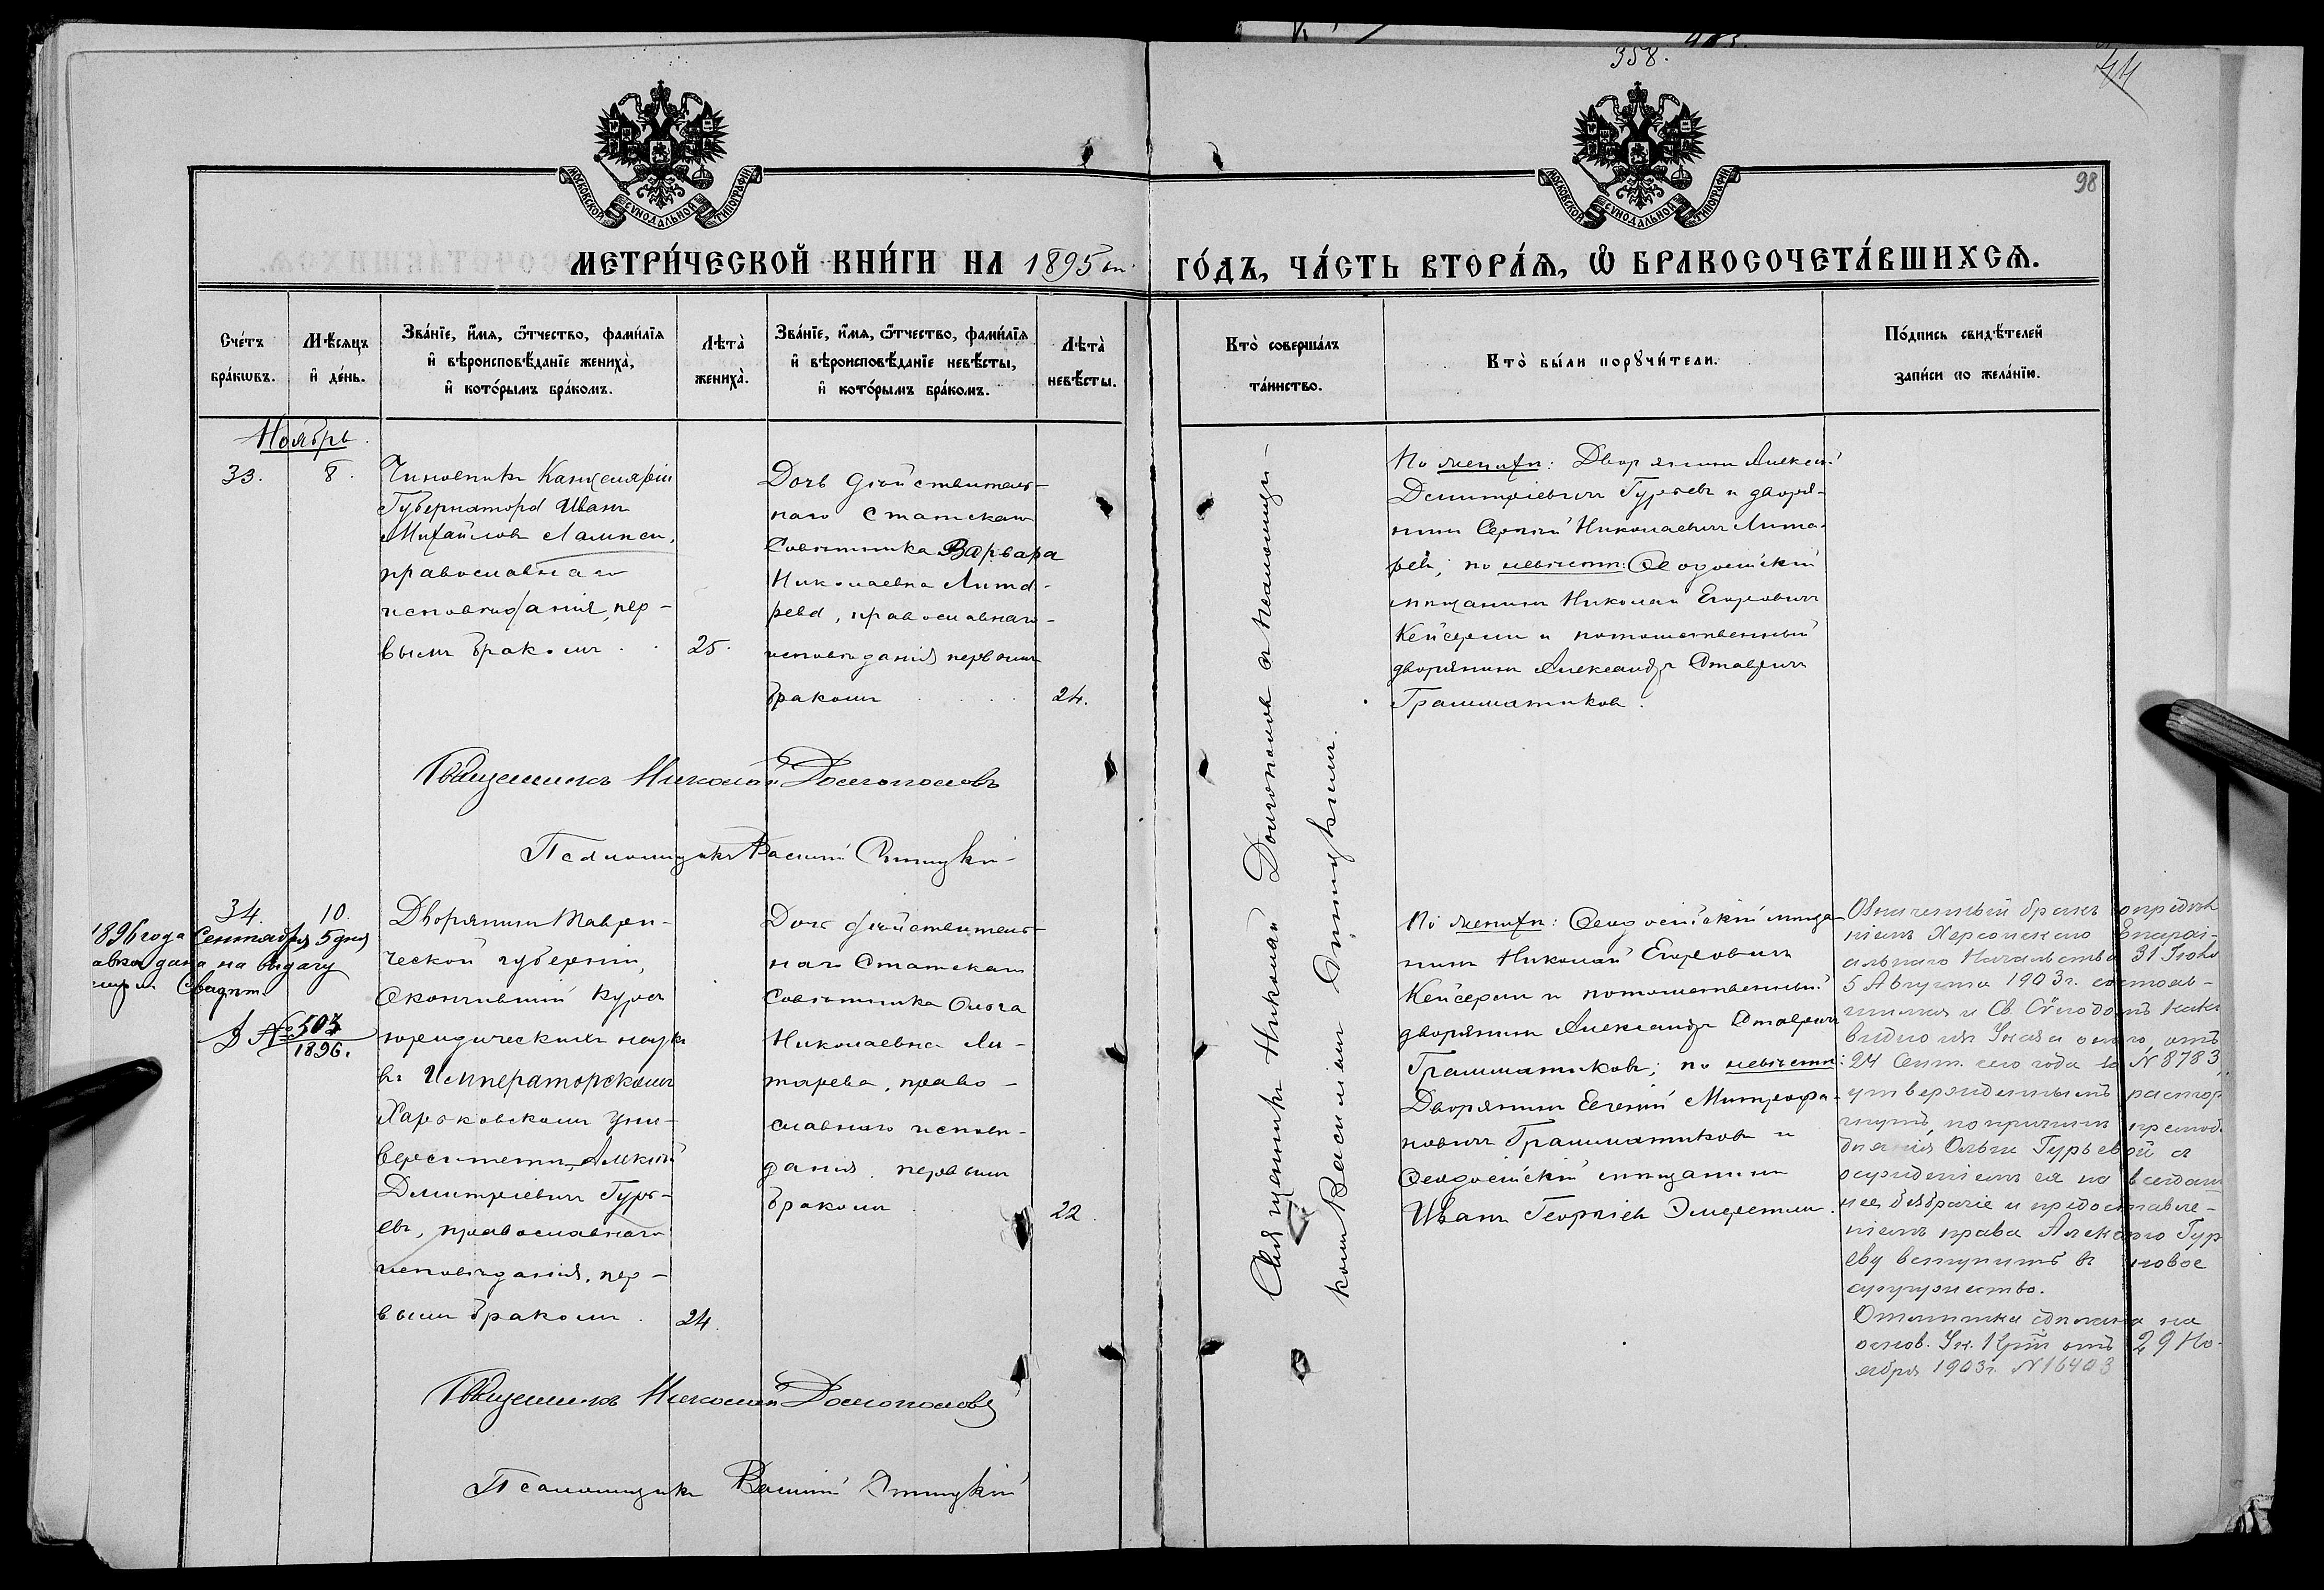 358.
44
98
МОСКОВСКОЙ СУНОДАЛЬНОЙ ТИПОГРАФІИ
МОСКОВСКОЙ СУНОДАЛЬНОЙ ТИПОГРАФІИ
МЕТРИ́ЧЕСКОЙ КНИ́ГИ НА 1895 ГО́ДЪ, ЧА́СТЬ ВТОРА́Ѧ, Ѡ҆ БРАКОСОЧЕТА́ВШИХСѦ.
Сче́тъ
бра́кѡвъ.
Мѣ́сяцъ
и҆ де́нь.
Зва́нїе, и҆́мѧ, ѻ҆́тчество, фами́лїѧ
и҆ вѣроисповѣ́данїе жениха̀,
и҆ кото́рымъ бра́комъ.
Лѣта̀
жениха̀.
Зва́нїе, и҆́мѧ, ѻ҆́тчество, фами́лїѧ
и҆ вѣроисповѣ́данїе невѣ́сты,
и҆ кото́рымъ бра́комъ.
Лѣта̀
невѣ́сты.
Кто̀ соверша́лъ
та́инство.
Кто̀ бы́ли порꙋчи́тели.
По́дпись свидѣ́телей
за́писи по жела́нїю.
Ноябрь
33.
8.
Чиновникъ Канцеляріи
Губернатора Иванъ
Михайловъ Лампси,
православнаго
исповѣданія, пер-
вымъ бракомъ
25.
Дочь дѣйствитель-
наго Статскаго
Совѣтника Варвара
Николаевна Лита-
рева, православнаго
исповѣданія первымъ
бракомъ
24.
По женихѣ: Дворянинъ Алексѣй
Дмитріевичъ Гурьевъ и дворя-
нинъ Сергѣй Николаевичъ Лита-
ревъ; по невѣстѣ: Ѳеодосійскій
мѣщанинъ Николай Егоровичъ
Кейсерли и потомственный
дворянинъ Александръ Ставричъ
Грамматиковъ.
Священникъ Николай Долгополовъ
Псаломщикъ Василій
Священникъ Николай Долгополовъ съ псаломщи-
комъ Василіемъ
34.
10.
1896 года Сентября 5 дня
дана на выдачу
Свидѣт.
№ 503
1896.
Дворянинъ Таври-
ческой губерніи,
Окончившій курсъ
юридическихъ наукъ
въ Императорскомъ
Харьковскомъ Уни-
верситетѣ, Алексѣй
Дмитріевичъ Гурь-
евъ, православнаго
исповѣданія, пер-
вымъ бракомъ
24.
Дочь дѣйствитель-
наго Статскаго
Совѣтника Ольга
Николаевна Ли-
тарева, право-
славнаго исповѣ-
данія, первымъ
бракомъ
22.
По женихѣ: Ѳеодосійскій мѣща-
нинъ Николай Егоровичъ
Кейсерли и потомственный
дворянинъ Александръ Ставричъ
Грамматиковъ; по невѣстѣ:
Дворянинъ Евгеній Митрофа-
новичъ Грамматиковъ и
Ѳеодосійскій мѣщанинъ
Иванъ Георгіевъ
Означенный бракъ опредѣле-
ніемъ Херсонскаго Епархі-
альнаго Начальства 31 Іюля
5 Августа 1903 г. состояв-
шимся и Св. Сѵнодомъ какъ
видно изъ Указа онаго, отъ
24 Сент. сего года за № 8783,
утвержденнымъ, расторг
нутъ, по причинѣ прелюбо
дѣянія Ольги Гурьевой съ
осужденіемъ ея на всегдаш
нее безбрачіе и предоставле-
ніемъ права Алексѣю Гурь
еву вступить въ новое
супружество.
Отмѣтка сдѣлана на
основ. Ук. Крій отъ 29 Но-
ября 1903 г. № 16403
Священникъ Николай Долгополовъ
Псаломщикъ Василій